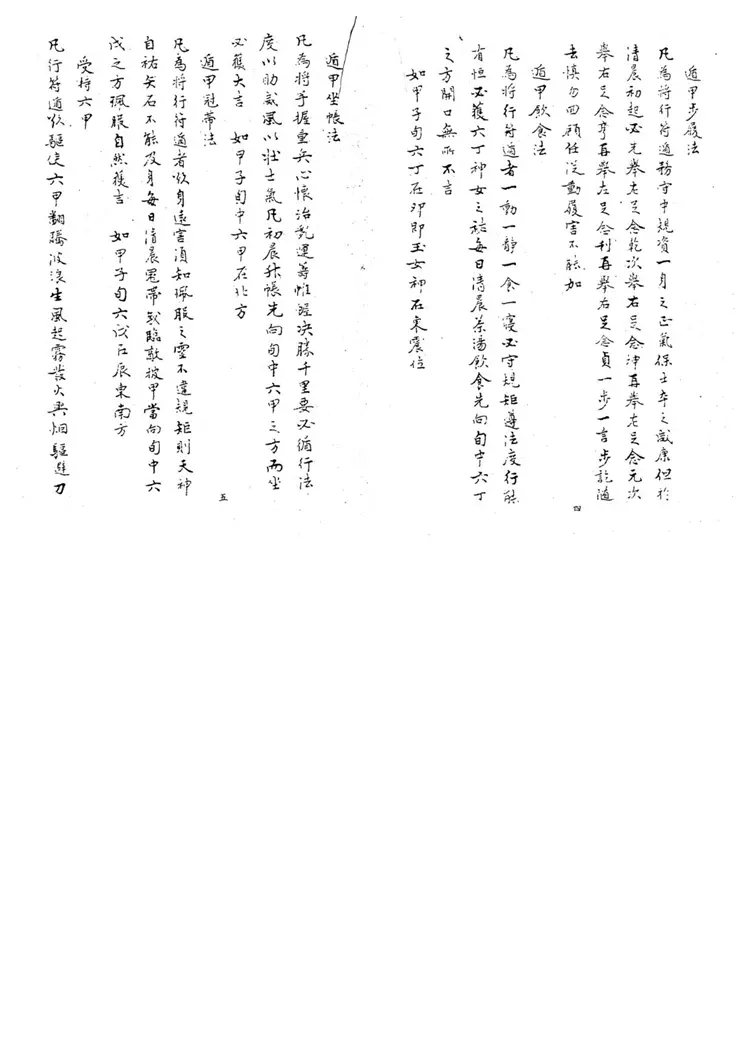 遁甲步履法
凡為將行符遁務守中規資一身之正氣保士卒之咸康但於
清晨初起必先舉左足念乾次舉右足念坤再舉左足念元次
舉右足念亨再舉左足念利再舉右足念貞一步一言步訖隨
去慎勿回顧任從動履害不能加
遁甲飲食法
凡為將行符遁者一動一靜一食一寢必守規矩遵法度行能
有恒必獲六丁神女之祐每日清晨茶湯飲食先向旬中六丁
之方開口無所不吉
如甲子旬六丁在卯即玉女神在東震位
四
遁甲坐帳法
凡為將手握重兵心懷治亂運籌帷幄决勝千里要必循行法
度以助威風以壯士氣凡初晨升帳先向旬中六甲之方而坐
必獲大吉 如甲子旬中六甲在北方
遁甲冠帶法
凡為將行符遁者欲身遠害須知珮服之靈不違規矩則天神
自祐矢石不能及身每日清晨冠帶或臨敵披甲當向旬中六
戊之方珮服自然獲吉 如甲子旬六戊在辰東南方
五
受持六甲
凡行符遁欲驅使六甲翻騰波浪生風起霧發火興烟驅進刀